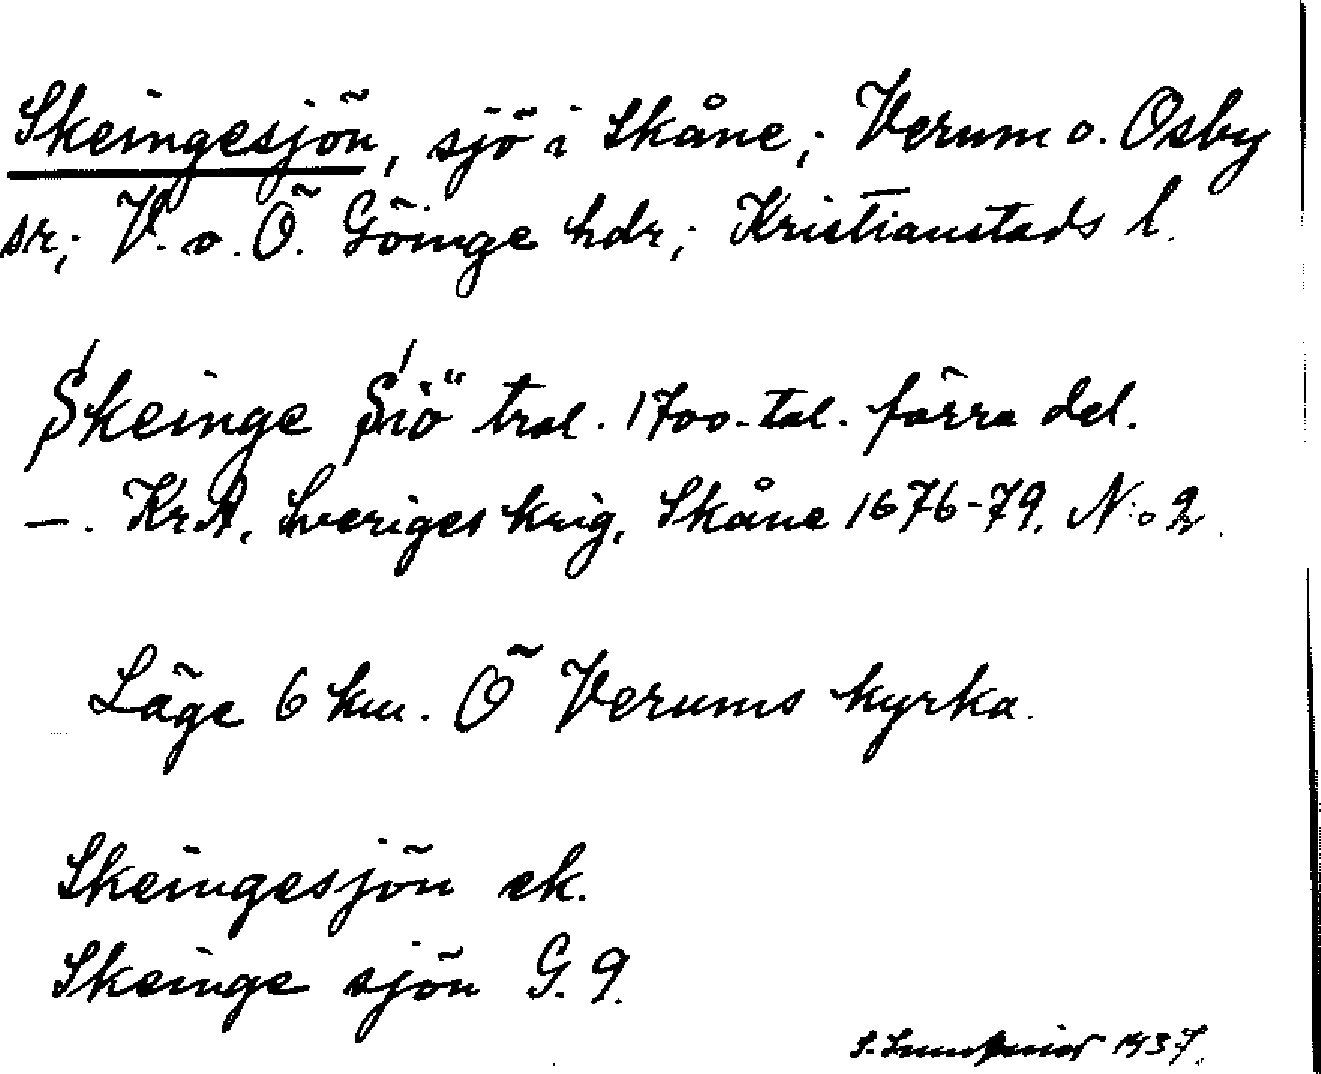 Skeingesjön, sjö i Skåne; Verum o. Osby
sr; V. o. Ö. Göinge hdr; Kristianstads l.
Skeinge Siö trol. 1700-tal. förra del.
—. KrA, Sveriges krig, Skåne 1676-79. N:o 2.
Läge 6 km. Ö Verums kyrka.
Skeingesjön ek.
Skeinge sjön G. 9.
S. 1937.